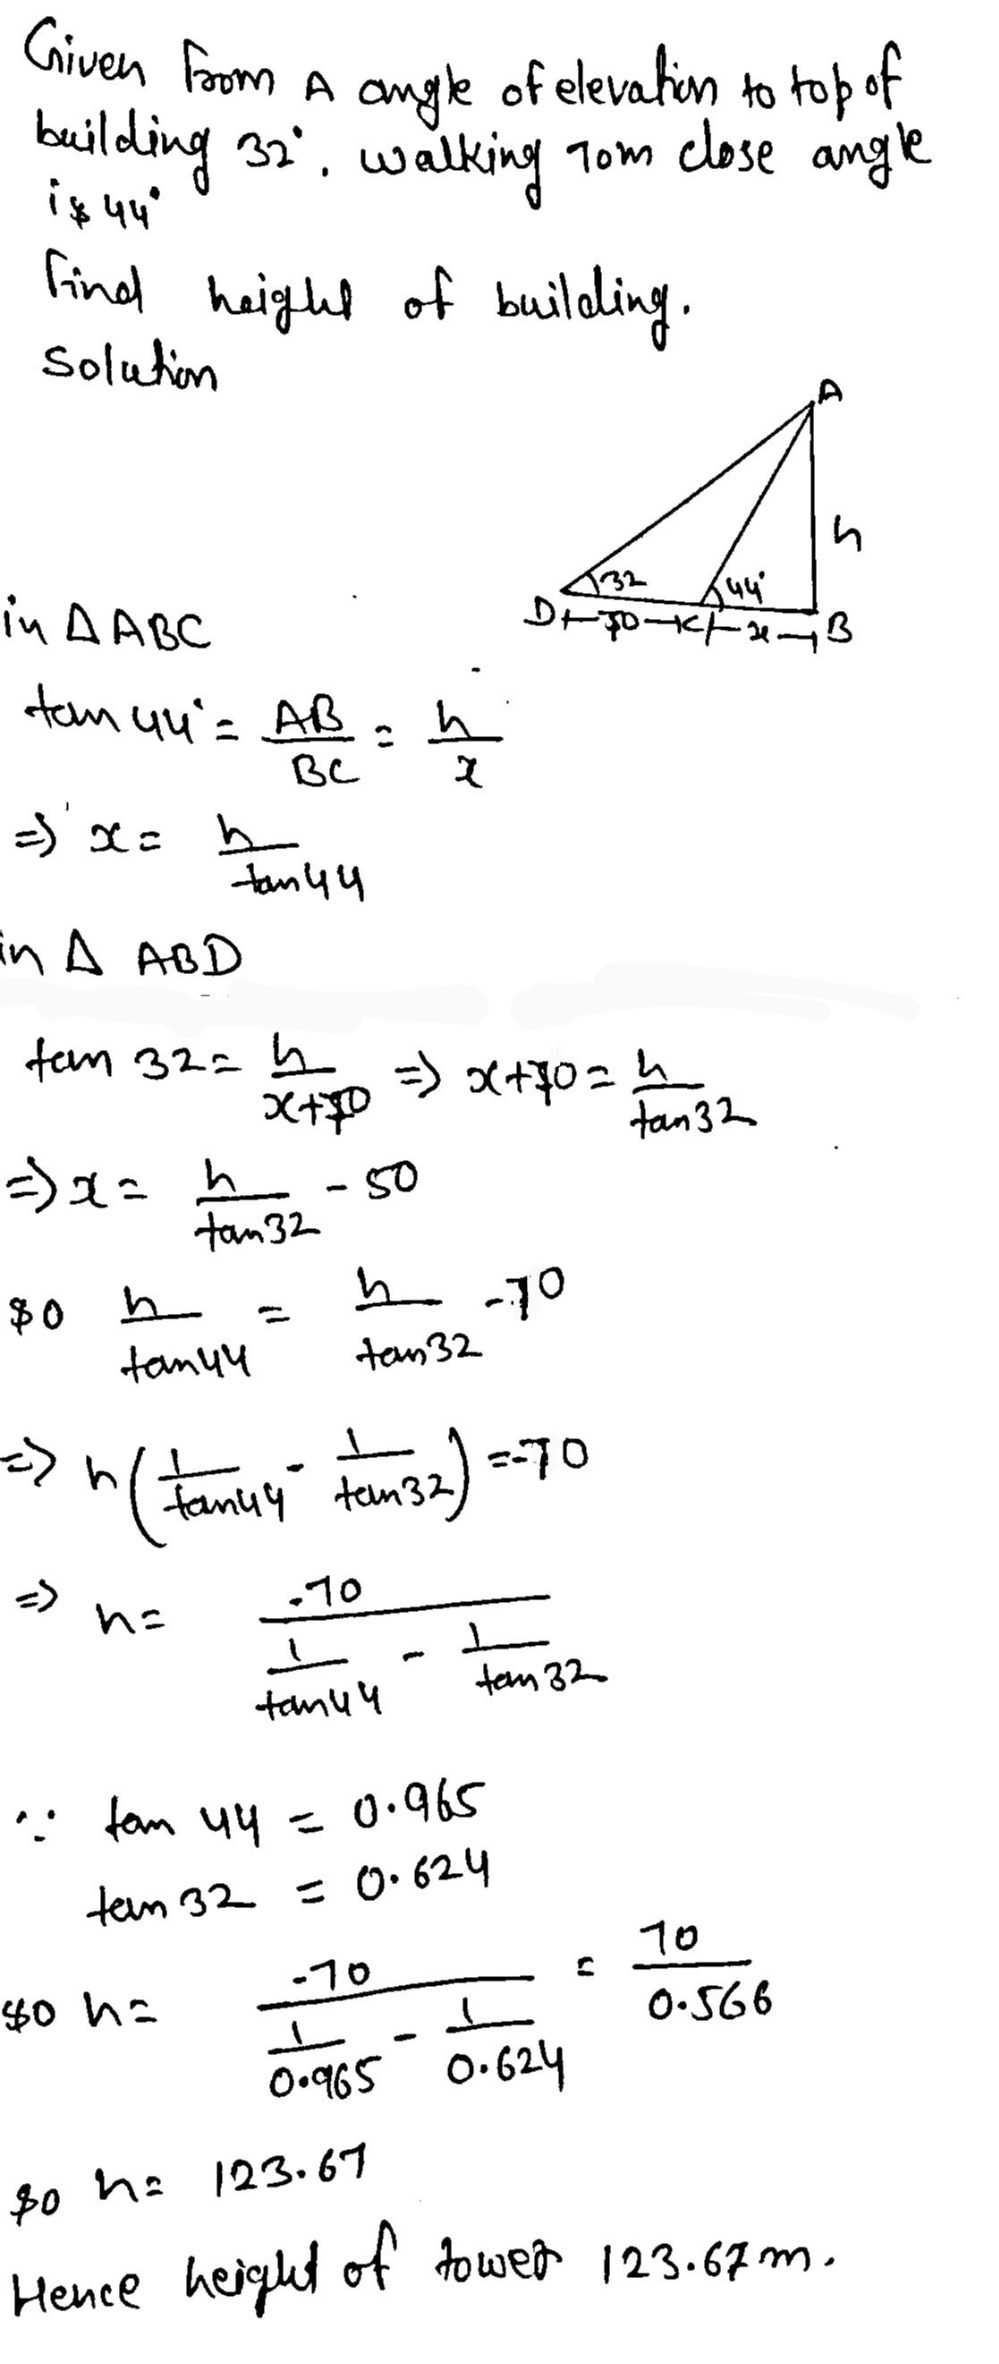 Given From A angle of elevation to top of
building 32°. walking 70m close angle
is 44°
Find height of building.
Solution
A
h
32
44°
D 70 C x B
in Δ ABC
tan 44° = AB/BC = h/x
=> x = h/tan44
in Δ ABD
tan 32 = h/x+70 => x+70 = h/tan32
=> x = h/tan32 - 50
So h/tan44 = h/tan32 - 70
=> h(1/tan44 - 1/tan32) = -70
=> h = -70/(1/tan44 - 1/tan32)
∵ tan 44 = 0.965
tan 32 = 0.624
So h = -70/(1/0.965 - 1/0.624) = 70/0.566
So h = 123.67
Hence height of tower 123.67m.